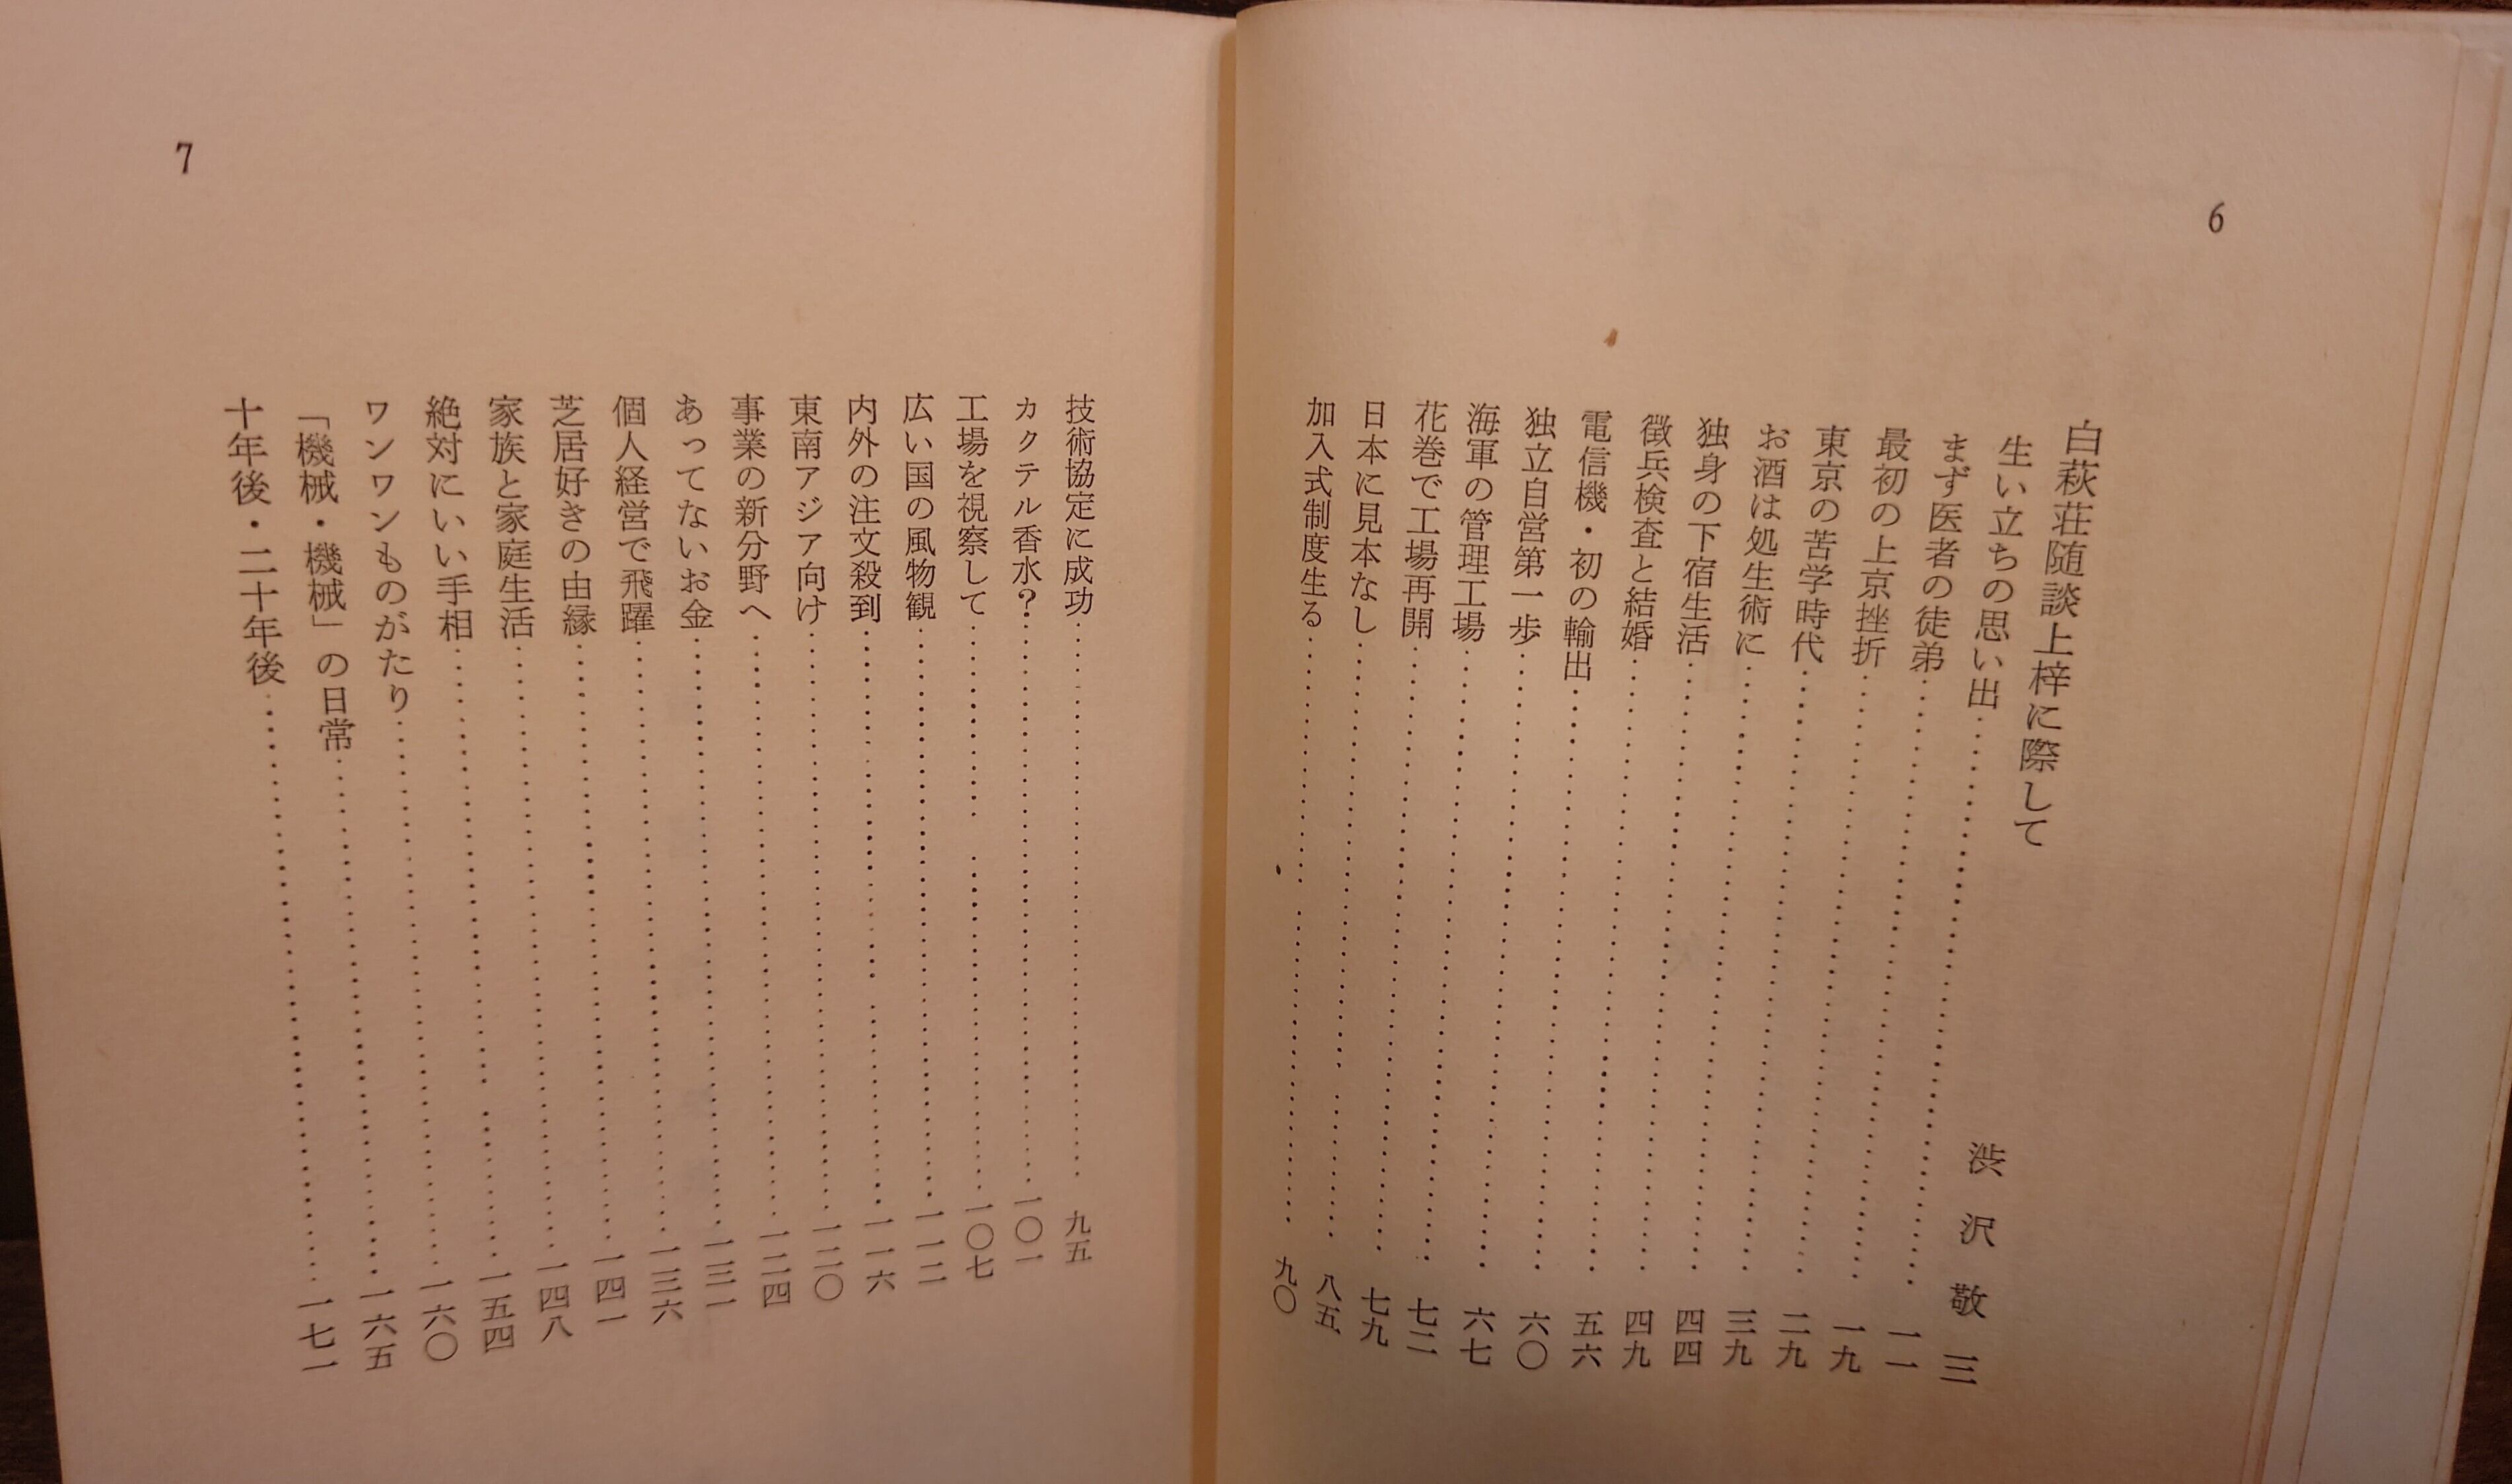 6
白萩荘随談上梓に際して 渋沢敬三
生い立ちの思い出……一一
まず医者の徒弟……一九
最初の上京挫折……二九
東京の苦学時代……三九
お酒は処生術に……四四
独身の下宿生活……四九
徴兵検査と結婚……五六
電信機・初の輸出……六〇
独立自営第一歩……六七
海軍の管理工場……七二
花巻で工場再開……七九
日本に見本なし……八五
加入式制度生る……九〇
7
技術協定に成功……九五
カクテル香水?……一〇一
工場を視察して……一〇七
広い国の風物観……一一二
内外の注文殺到……一一六
東南アジア向け……一二〇
事業の新分野へ……一二四
あってないお金……一三一
個人経営で飛躍……一三六
芝居好きの由縁……一四一
家族と家庭生活……一四八
絶対にいい手相……一五四
ワンワンものがたり……一六〇
「機械・機械」の日常……一六五
十年後・二十年後……一七一